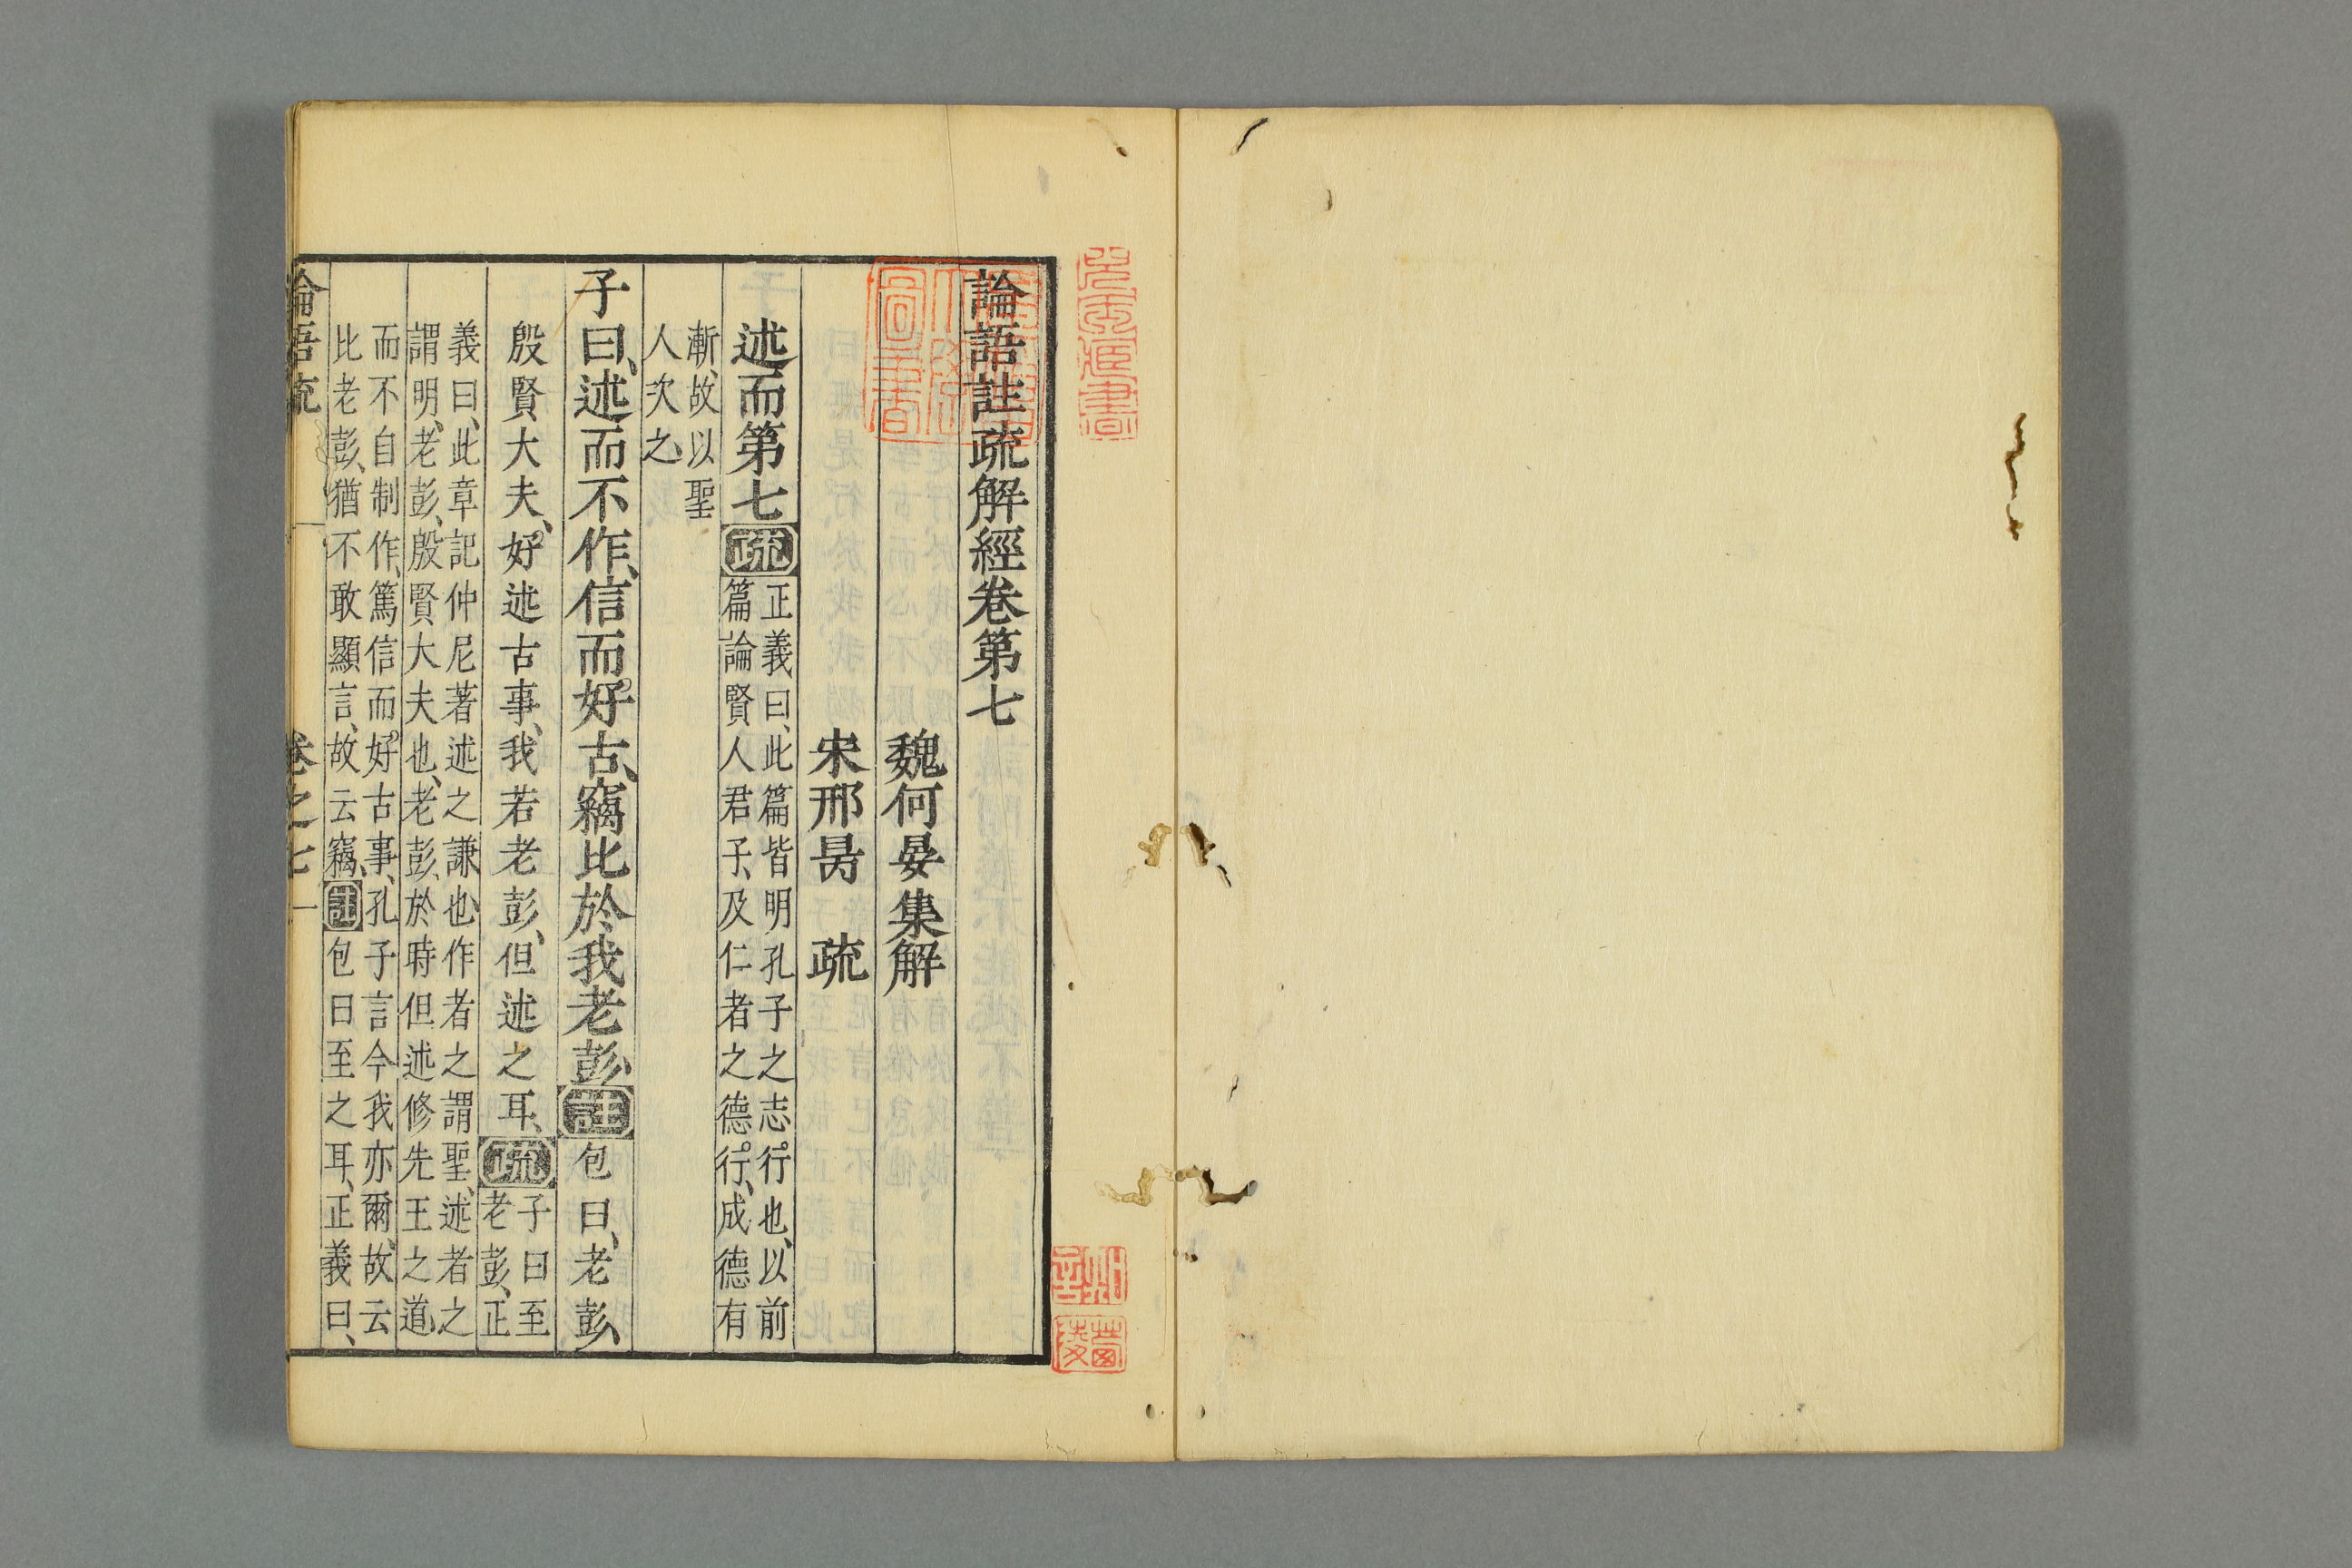 論語註疏解經卷第七
魏何晏集解
宋邢昺 疏
述而第七疏 正義曰、此篇皆明孔子之志行也、以前
篇論賢人君子、及仁者之德行、成德有
漸、故以聖
人次之、
子曰、述而不作、信而好古、竊比於我老彭、註包曰、老彭、
殷賢大夫、好述古事、我若老彭、但述之耳、疏 子曰至
老彭、正
義曰、此章記仲尼著述之謙也、作者之謂聖、述者之
謂明、老彭、殷賢大夫也、老彭、於時但述修先王之道、
而不自制作、篤信而好古事、孔子言今我亦爾、故云
比老彭、猶不敢顯言、故云竊、註包曰至之耳、正義曰、
論語疏 卷之七 一
圖書